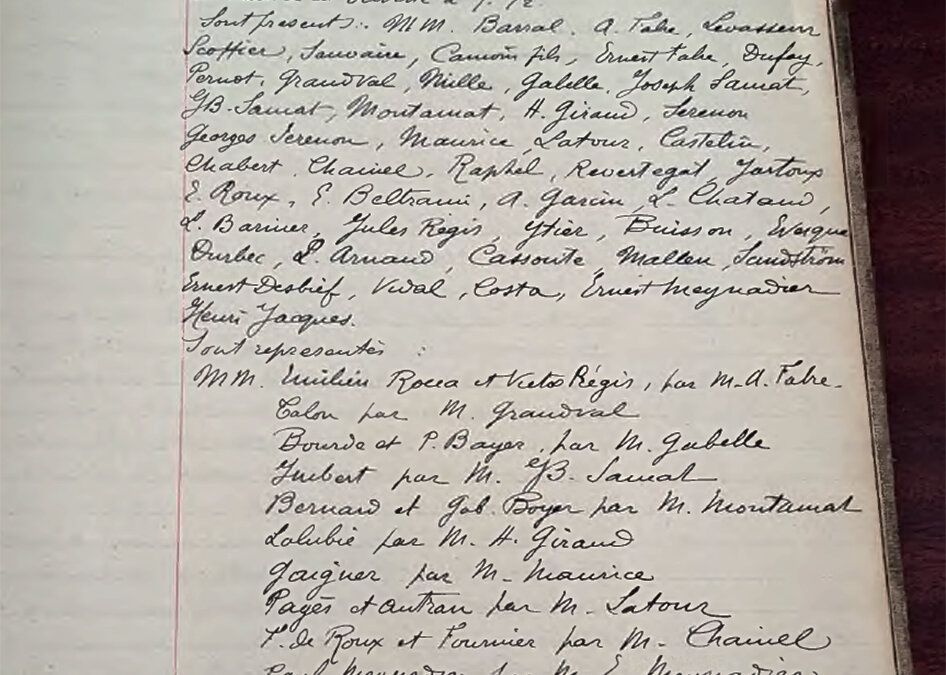 Sont présents :. MM. Barral. A. Fabre, Levasseur
Scoffier, Sauvaire, Camoin fils, Ernest Fabre, Dufay,
Pernot, Grandval, Mille, Gabelle, Joseph Samat,
JB. Samat, Montamat, H. Giraud, Serenon
Georges Serenon, Maurice, Latour, Castelin,
Chabert, Chainel, Raphel, Revertegat, Jartoux
E. Roux, E. Beltrami, A. Garcin, L. Chataud,
L. Barnier, Jules Régis, Ytier, Buisson,
Durbec, L. Arnaud, Cassoute, Mallen, Sandström
Ernest Desbief, Vidal, Costa, Ernest Meynadier
Henri Jacques.
Sont représentés :
MM. Emilien Rocca et Victor Régis, par M. A. Fabre.
Talon par M. Grandval
Bourde et P. Bayer, par M. Gabelle
Imbert par M. JB. Samat
Bernard et Gab. Boyer par M. Montamat
Lalubie par M. H. Giraud
Gaigner par M. Maurice
Pagès et Autran par M. Latour
F. de Roux et Fournier par M. Chainel
Meynadier par M. E. Meynadier